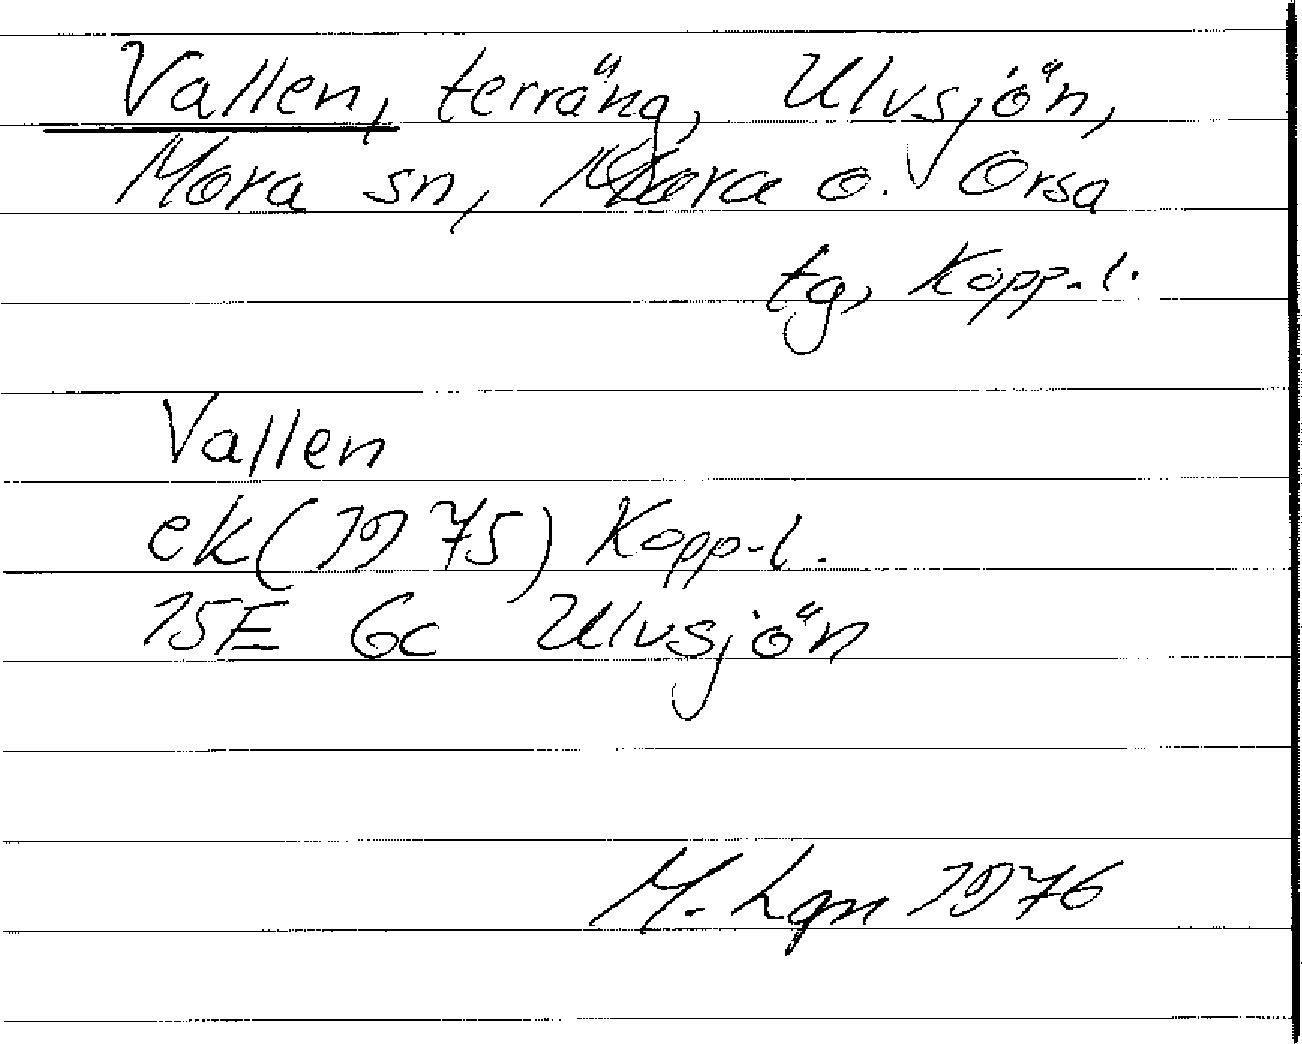 Vallen, terräng, Ulvsjön,
Mora sn, Mora o. Orsa
tg, Kopp. l.
Vallen
ek (1975) Kopp. l.
15E 6c Ulvsjön
M. Lgn 1976